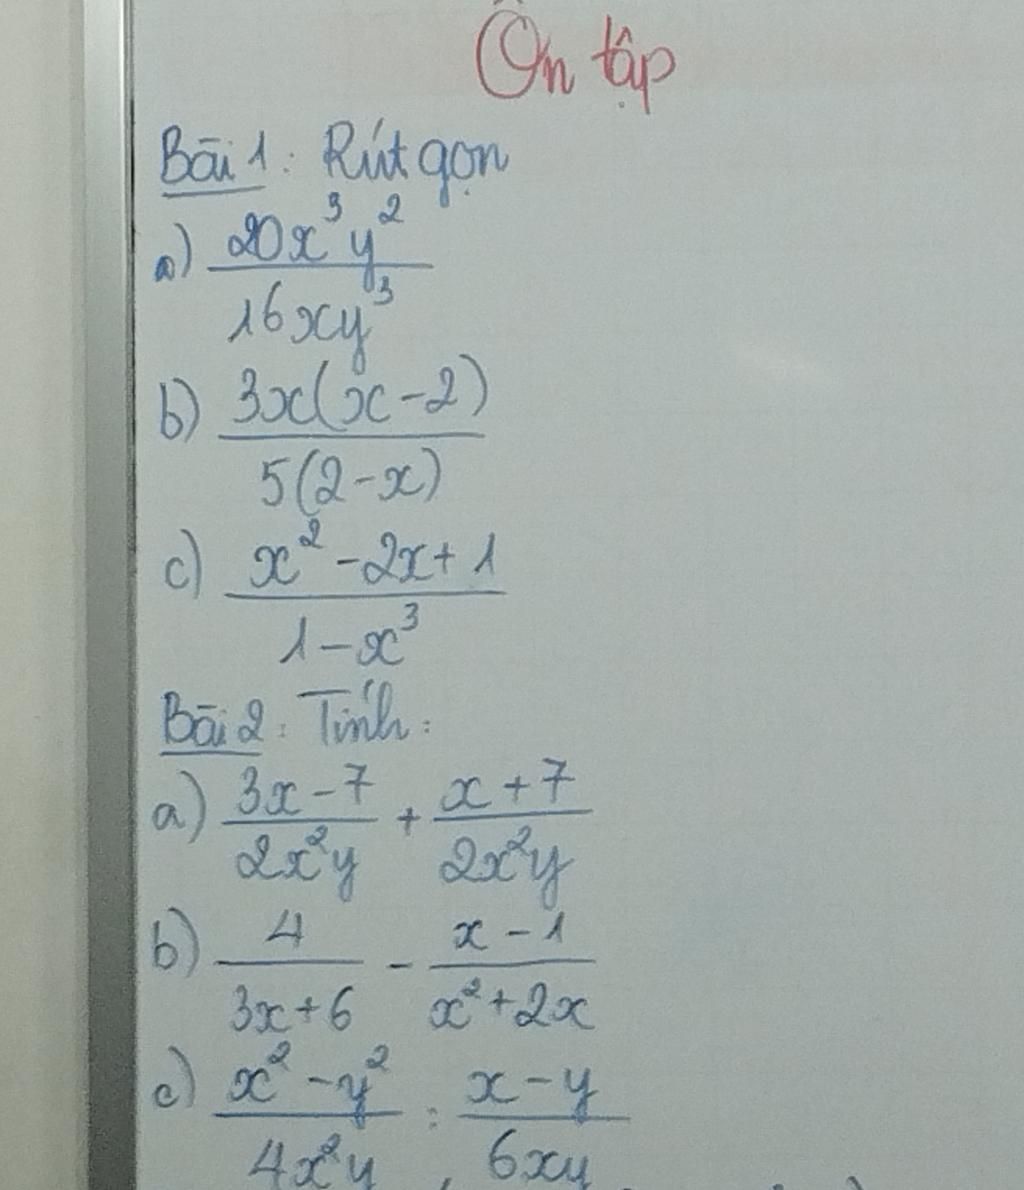 Ôn tập
Bài 1: Rút gọn
a) \frac{20x^3y^2}{16xy^3}
b) \frac{3x(x-2)}{5(2-x)}
c) \frac{x^2-2x+1}{1-x^3}
Bài 2: Tính:
a) \frac{3x-7}{2x^2y} + \frac{x+7}{2x^2y}
b) \frac{4}{3x+6} - \frac{x-1}{x^2+2x}
c) \frac{x^2-y^2}{4x^2y} : \frac{x-y}{6xy}